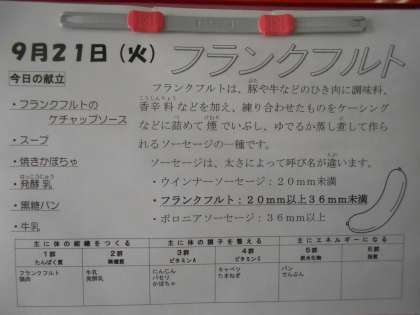 9月21日(火)
フランクフルト
今日の献立
・フランクフルトの
ケチャップソース
・スープ
・焼きかぼちゃ
はっこうにゅう
・発酵乳
・黒糖パン
・牛乳
フランクフルトは、豚や牛などのひき肉に調味料、
こうしんりょう
香辛料などを加え、練り合わせたものをケーシング
などに詰めて煙でいぶし、ゆでるか蒸し煮して作ら
れるソーセージの一種です。
ソーセージは、太さによって呼び名が違います。
・ウインナーソーセージ：20mm未満
・フランクフルト：20mm以上36mm未満
・ボロニアソーセージ：36mm以上
主に体の組織をつくる 主に体の調子を整える 主にエネルギーになる
1群 2群 3群 4群 5群 6群
たんぱく質 無機質 ビタミンA ビタミンC 炭水化物 脂質
フランクフルト 牛乳 にんじん キャベツ パン
鶏肉 発酵乳 パセリ たまねぎ でんぷん
かぼちゃ